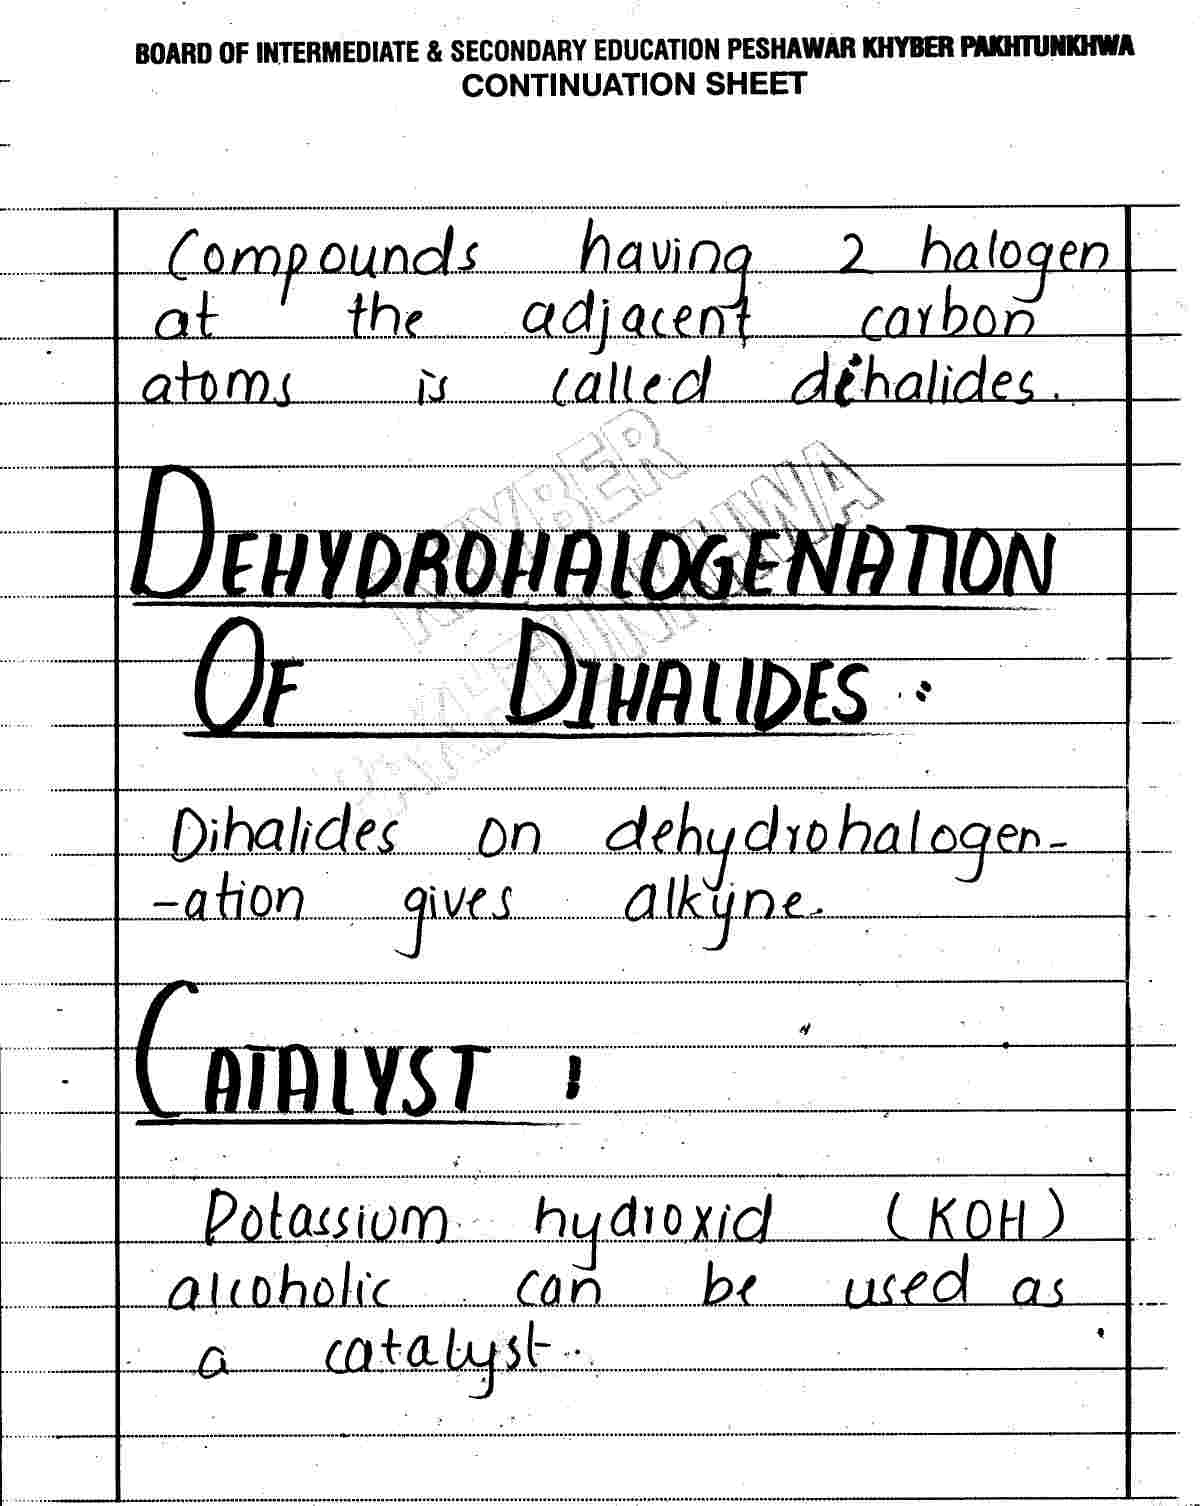 BOARD OF INTERMEDIATE & SECONDARY EDUCATION PESHAWAR KHYBER PAKHTUNKHWA
CONTINUATION SHEET
Compounds having 2 halogen
at the adjacent carbon
atoms is called dihalides.
KHYBER
PAKHTUNKHWA
DEHYDROHALOGENATION
OF DIHALIDES :
Dihalides on dehydrohalogen-
-ation gives alkyne.
CATALYST :
Potassium hydroxid (KOH)
alcoholic can be used as
a catalyst.